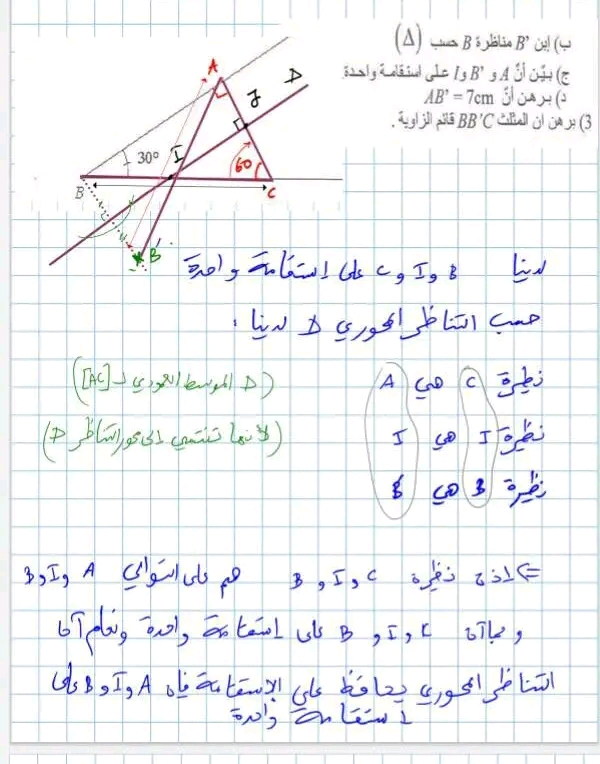 ب) إبن B' مناظرة B حسب (Δ)
ج) بيّن أنّ A و B' و I على استقامة واحدة.
د) برهن أنّ AB' = 7cm
3) برهن ان المثلث BB'C قائم الزاوية .
A
Δ
J
30°
I
60
B
C
B'
لدينا B و I و C على إستقامة واحدة
حسب التناظر المحوري Δ لدينا :
نظيرة C هي A (Δ الموسط العمودي لـ [AC])
نظيرة I هي I (لأنها تنتمي إلى محور التناظر Δ)
نظيرة B هي B'
=> إذن نظيرة C و I و B هم على التوالي A و I و B'
و بما أن C و I و B على إستقامة واحدة ونعلم أن
التناظر المحوري يحافظ على الإستقامة فإن A و I و B' على
إستقامة واحدة